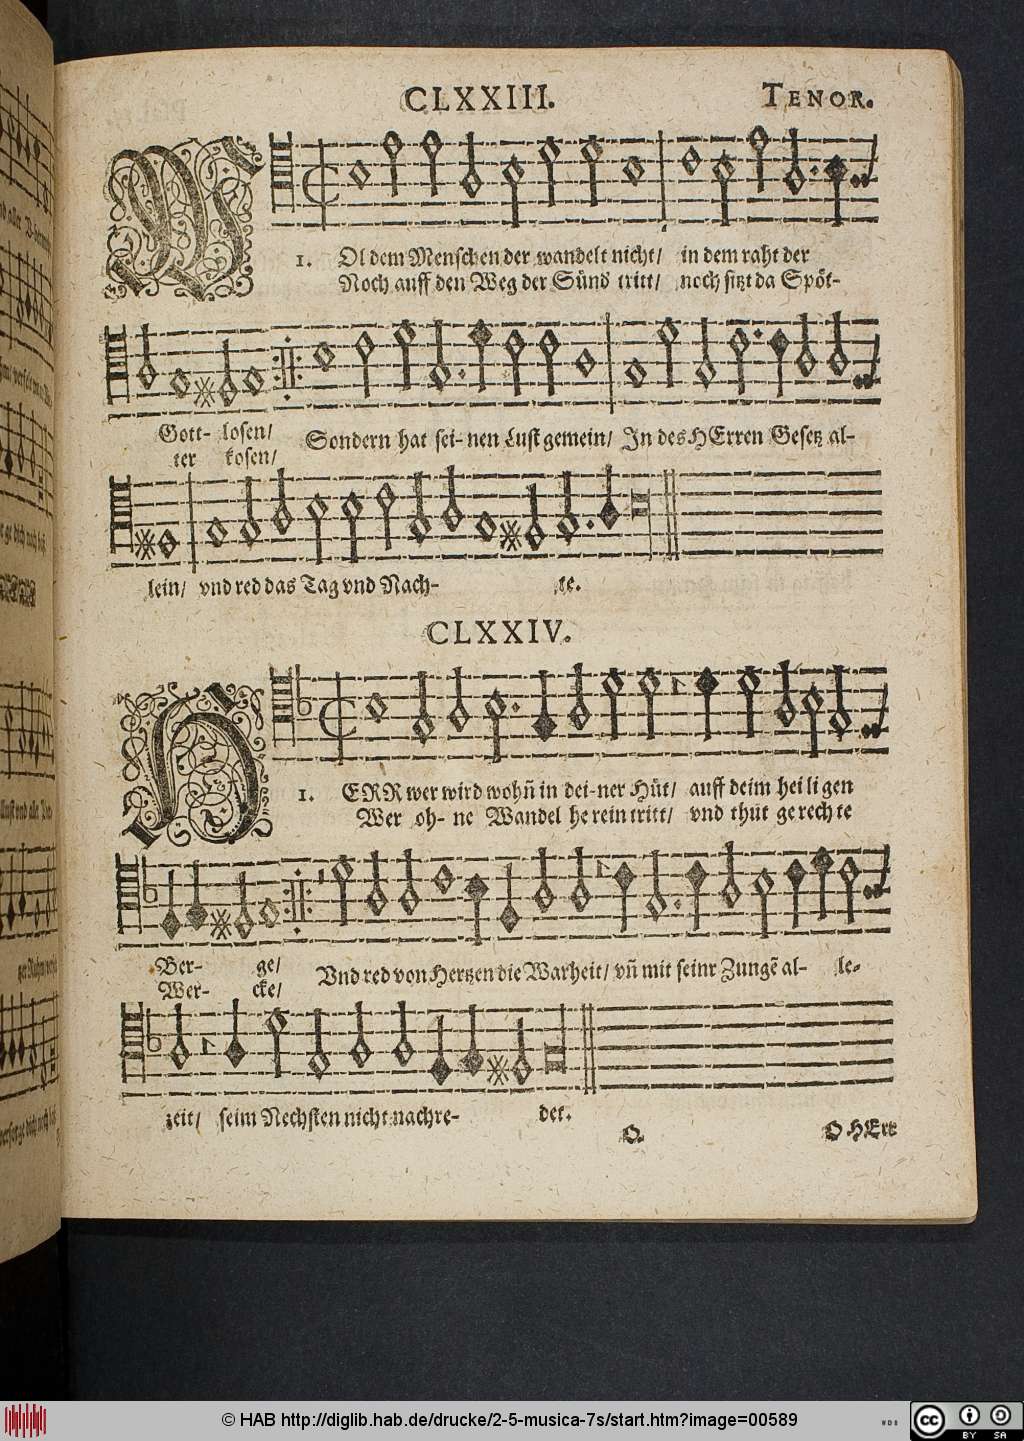 CLXXIII.
TENOR.
WOl dem Menschen der wandelt nicht/ in dem raht der
1.
Noch auff den Weg der Sünd tritt/ noch sitzt da Spöt-
Gott- losen/ Sondern hat sei- nen Lust gemein/ In des HErren Gesetz al-
ter kosen/
lein/ vnd red das Tag vnd Nach- te.
CLXXIV.
1. HERR wer wird wohñ in dei-ner Hüt/ auff deim hei li gen
Wer oh- ne Wandel he rein tritt/ vnd thut ge rech te
Ber- ge/ Vnd red von Hertzen die Warheit/ vñ mit seinr Zungẽ al- le-
Wer- cke/
zeit/ seim Nechsten nicht nachre- det.
O.
O HErr
© HAB http://diglib.hab.de/drucke/2-5-musica-7s/start.htm?image=00589
WDB
cc BY SA